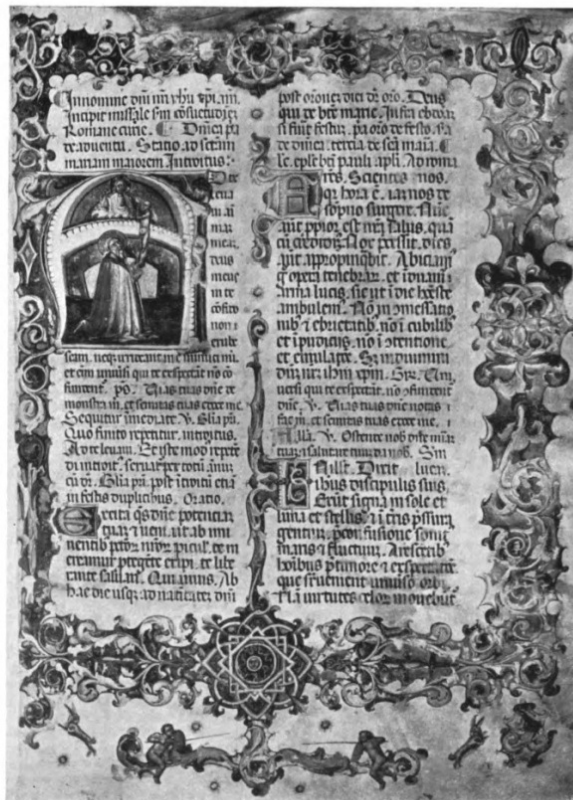 In nomine dñi nrī yhu xpi. am.
Incipit missale scđm ɔsuetudinē
Romane curie. Dñica pa
de adventu. Statio ad sctām
mariam maiorem Introitus:
A D te
leva
vi aī
mam
meā.
deus
meus
in te
cōfido
non e
rube
scam. neqz irrideant me inimici mī.
et eñi uniūsi qui te exspectāt nō cō
fundent. ps. Vias tuas dñe de
monstra m̄. et semitas tuas edoce me.
Sequitur īmediate. V. Glia pri.
Quo finito repetitur. introitus.
Ad te levam. Et iste mod repetē
di introit. servat per totū annū
cū dr̄. Glia pri. post ītroitū etiā
in festis duplicibus. Oratio.
Excita qs dñe potentiaz
tuaz & veni. ut ab imi
nentib pctor nror piculis. te m
ereamur ptegēte eripi. te libe
rante salvari. Qui vivis. Ab
hac die usqz ad nativitatez dñi
post orones dici dr oro. Deus
qui de bte marie. Infra
si fuit festuz. pa oro de festo. sa
de dnica. tercia de scā maria.
Lc. eplē bti pauli apli. Ad roma
nos.
FRes. Scientes
qz hora ē. iaz nos de
sopno surgere. Nūc
aut ppior est nrā salus. quā
cū credidimꝰ. Nox pcessit. dies
aut appropinqbit. Abiciamꝰ
g opera tenebrar. et īduam
arma lucis. sic ut ī die hoēste
ambulemꝰ. Nō in ɔmessatio
nib & ebrietatib. nō ī cubilib
et ipudicitiis. nō ī ɔtentione
et emulatoe. Sz induimini
dnm nrm ihm xpm. Gr. Uni
versi qui te exspectāt. nō ɔfundent
dñe. V. Vias tuas dñe notas
fac m̄. et semitas tuas edoce me.
Alla. V. Ostende nob dñe mīaz
tuaz & salutare tuuz da nob. Scdm
lucam.
IN illo t. Dixit
ihus discipulis suis.
Erūt signa in sole et
luna et stellis. & ī tris pssura
gentiuz. p ɔfusione sonitꝰ
maris & fluctuuz. Arescētib
hoībus p timore & exspectatiōe
que supvenient universo orbi.
Nā virtutes celoz movebūt